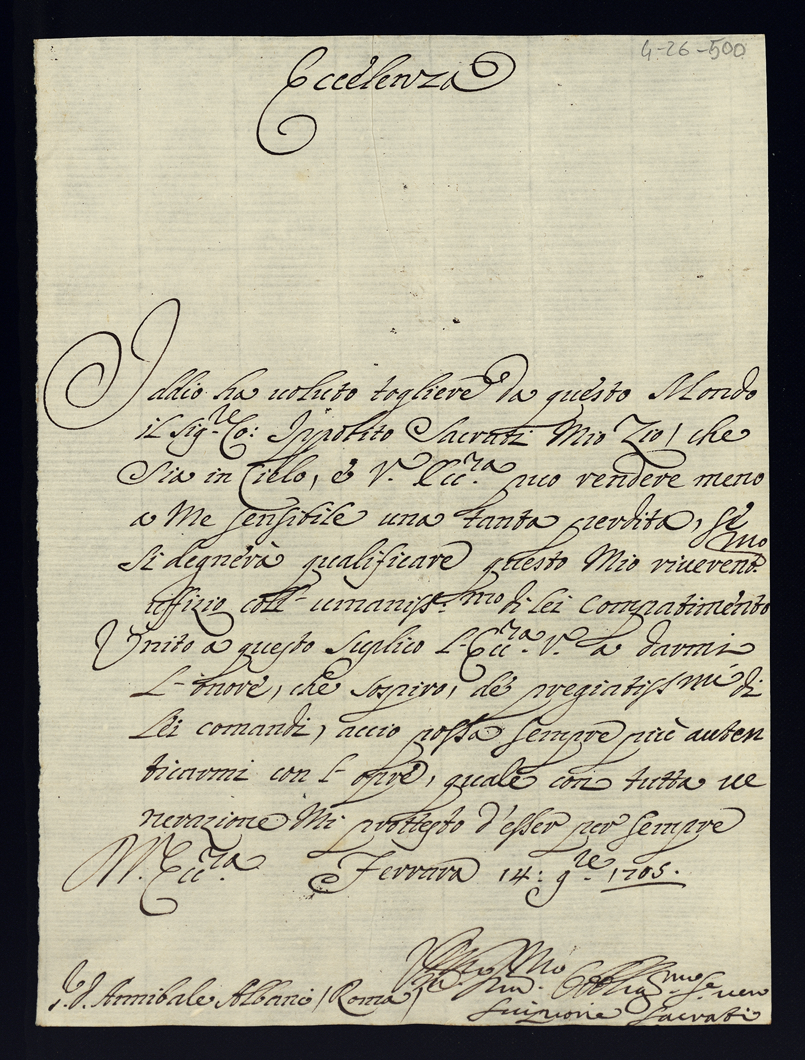 4-26-500
Eccelenza
Iddio ha uoluto togliere da questo Mondo
il Sig.re Co: Ippolito Sacrati Mio Zio, che
Sia in Cielo, è V. Ecc.za puo rendere meno
a Me sensibile una tanta perdita, se
si degnerà qualificare questo Mio riuerent.mo
uffizio coll- umaniss.mo di lei compatimento
Unito a questo Suplico l-Ecc.za V. a darmi
L-onore, che sospiro, de pregiatissmi di
Lei comandi, accio possa sempre più auten
ticarmi con l-opre, quale con tutta ue
nerazione Mi protesto d'esser per sempre
D. V. Ecc.za Ferrara 14: 9re 1705.
Seruo
S. D. Annibale Albani / Roma / Scipione Sacrati